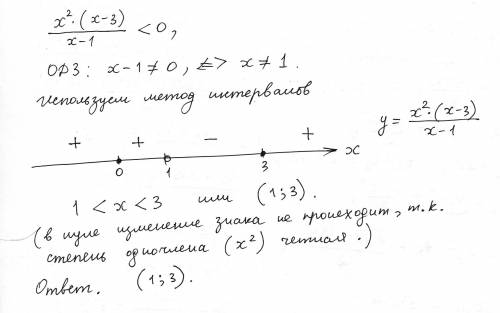 x²·(x-3) / x-1 < 0,
ОДЗ: x-1≠0, <=> x≠1.
Используем метод интервалов
y = x²·(x-3) / x-1
+ + - +
0 1 3 x
1 < x < 3 или (1;3).
(в нуле изменение знака не происходит, т.к.
степень одночлена (x²) четная.)
Ответ. (1;3).